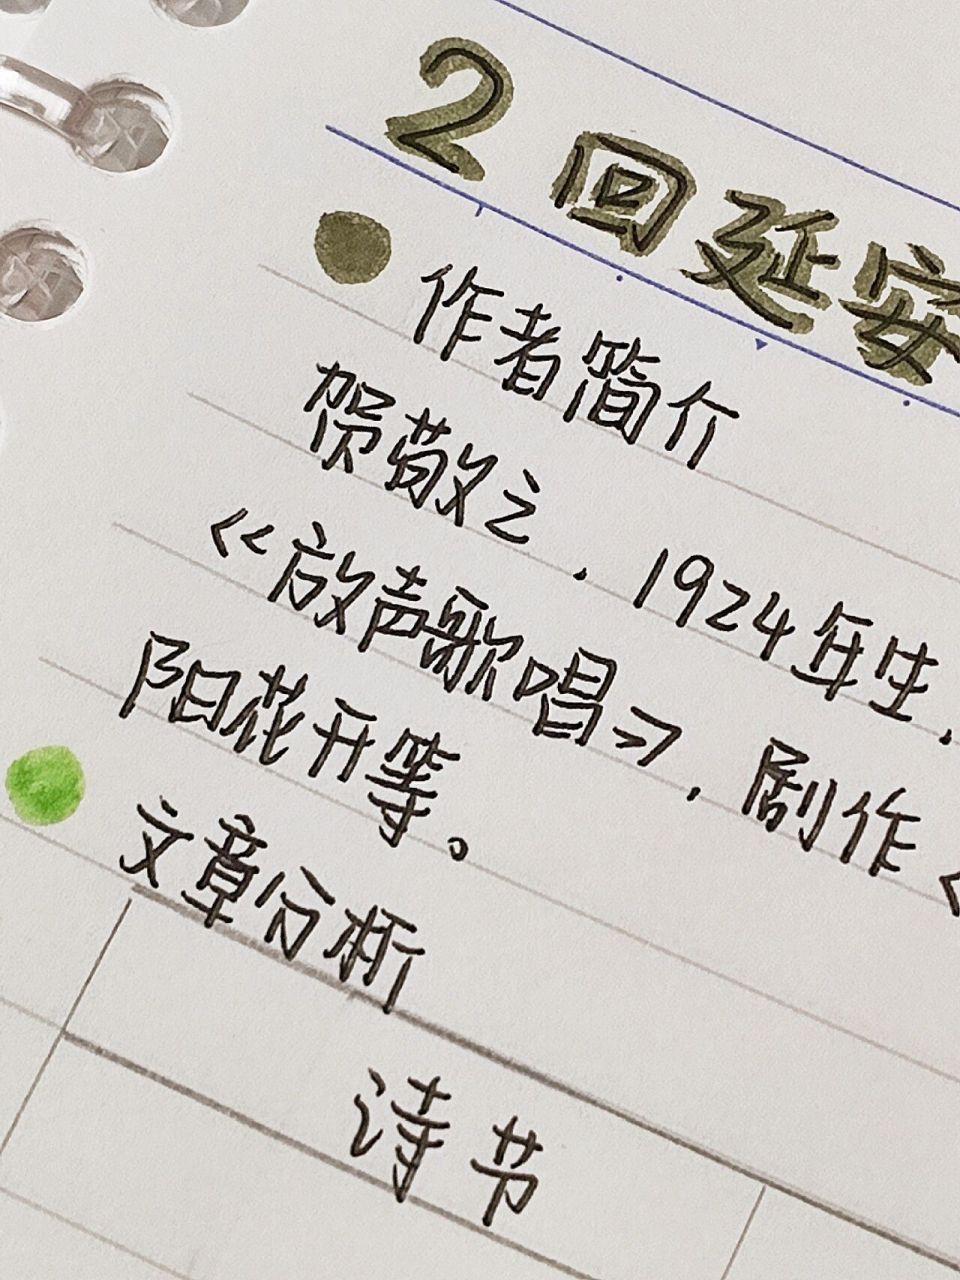 2 回延安
作者简介
贺敬之,1924年生,
《放声歌唱》,剧作《
阳花开等。
文章分析
诗节